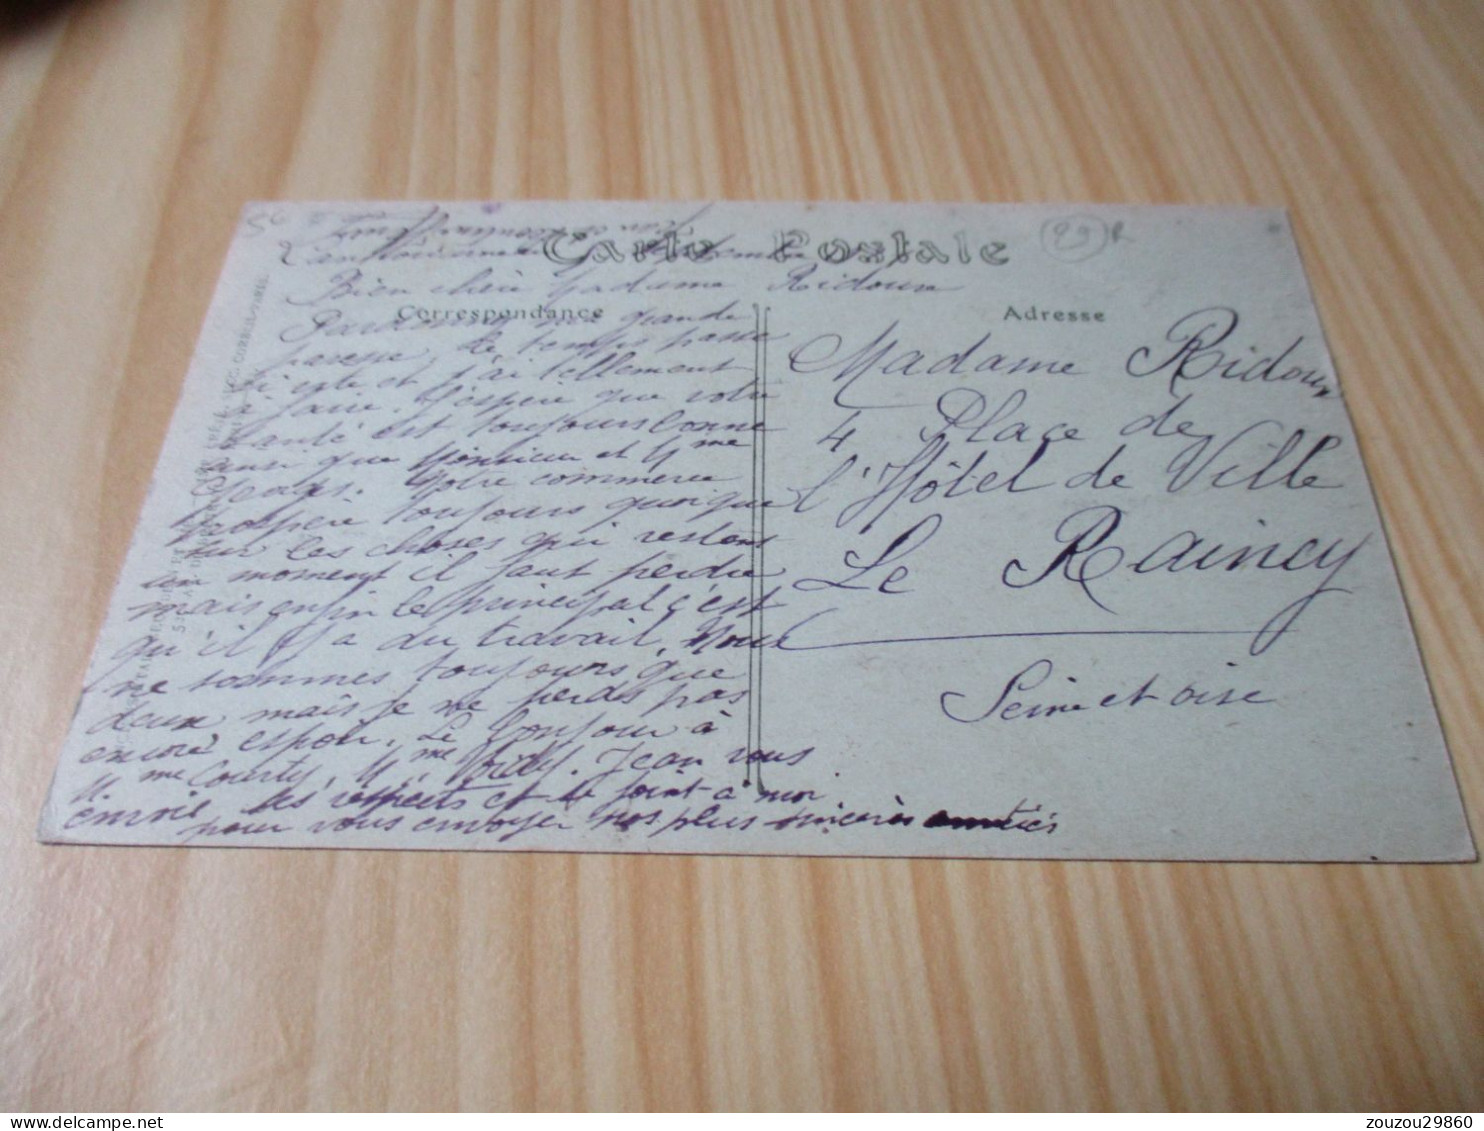 56
29 R
Carte Postale
Bien chère Madame Ridoux
Correspondance
Adresse
Pardonnez ma grande
paresse, le temps passe
si vite et j'ai tellement
à faire. J'espère que votre
santé est toujours bonne
ainsi que Monsieur et Mme
Notre commerce
prospère toujours quoique
sur les choses qui restent
en moment il faut perdre
mais enfin le principal c'est
qu'il y a du travail. Nous
ne sommes toujours que
deux mais je ne perds pas
encore espoir. Le bonjour à
Mme Courty, Mme. Jean vous
envoie ses respects et se joint à moi
pour vous envoyer nos plus sincères amitiés
Madame Ridoux
4 Place de
l'Hôtel de Ville
Le Raincy
Seine et Oise
zouzou29860